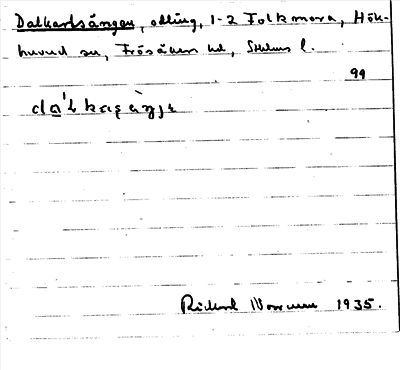 Dalkarlsängen, odling, 1-2 Folkmora, Hök-
huvud sn, Frösåkers hd, Sthlms l.
99
da'lkaṣäŋjɩ
Rickard Norman 1935.